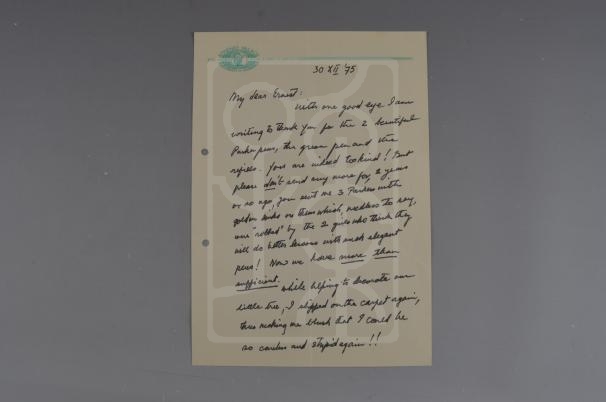 30 XII '75
My dear Ernest:
With one good eye I am
writing to thank you for the 2 beautiful
Parker pens, the green pen and the
refills. You are indeed too kind! But
please don't send any more for 2 years
or so ago, you sent me 3 Parkers with
golden on them which, needless to say,
were "robbed" by the 2 girls who think they
will do better lessons with such elegant
pens! Now we have more than
sufficient.
While helping to decorate our
little tree, I slipped on the carpet again,
thus making me blush that I could be
so careless and stupid again!!